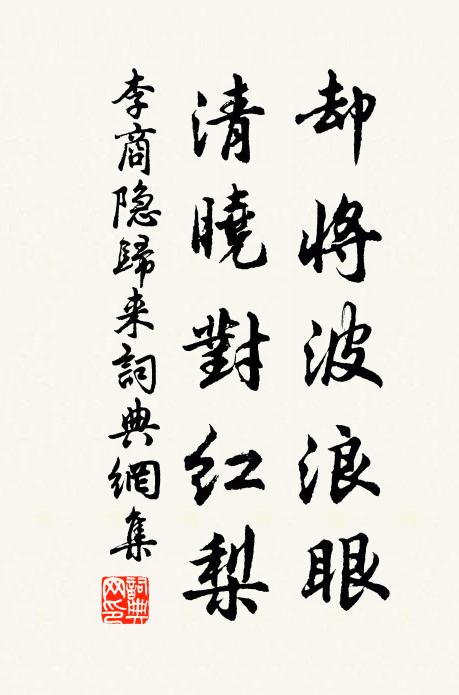 却將波浪眼
清曉對红梨
李商隐歸来詞典網集
詞典网印